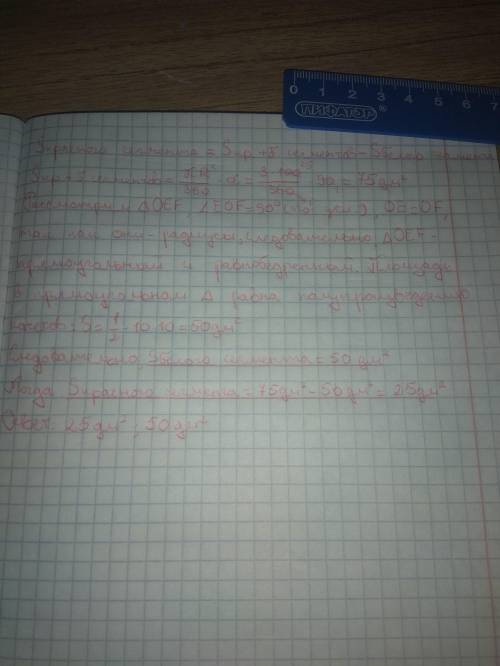 0 1 2 3 4 5 6 7
ПИФАГОР
Sкрасного сегмента = Sкр +б сегментов - Sбелого
Sкр+б сегментов = πR²/360 · α = 3·100/360 · 90 = 75дм²
Рассмотрим △OEF, ∠EOF=90° (по усл.), OE=OF,
так как они - радиусы, следовательно △OEF -
прямоугольный и равнобедренный. Площадь
в прямоугольном △ равна полупроизведению
катетов: S = 1/2 · 10 · 10 = 50дм²
Следовательно, Sбелого сегмента = 50 дм²
Тогда Sкрасного сегмента = 75дм² - 50дм² = 25дм²
Ответ: 25дм²; 50дм²